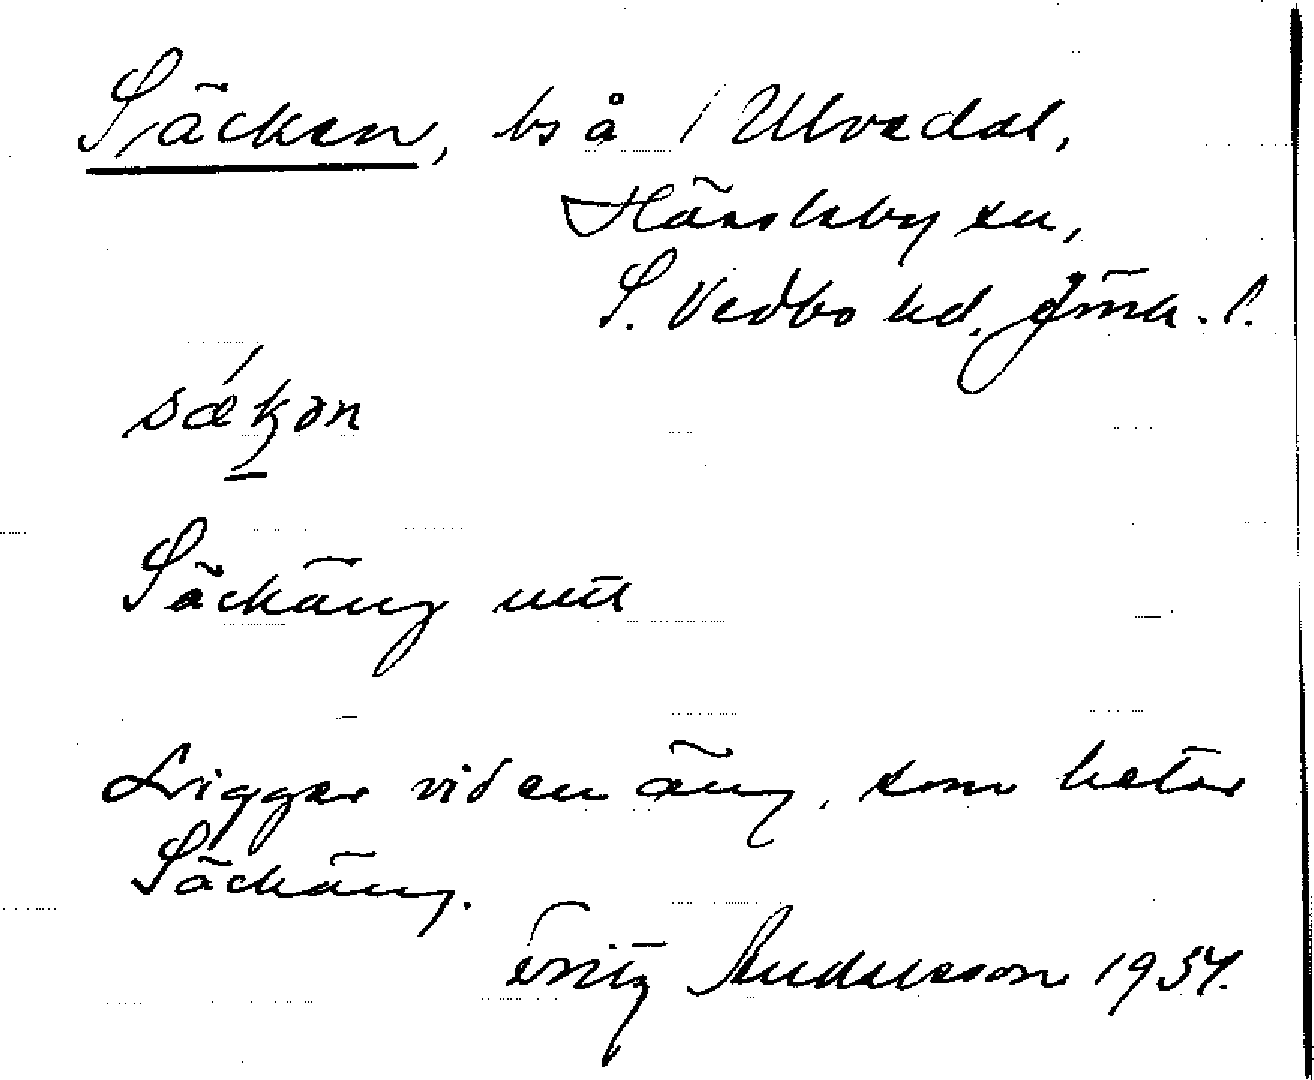 Säcken, bs å 1 Ulvedal,
Hässleby sn,
S. Vedbo hd. Jönk. l.
sǽkən
Säckäng nttl
Ligger vid en äng, som heter
Säckäng.
Fritz Andersson 1934.